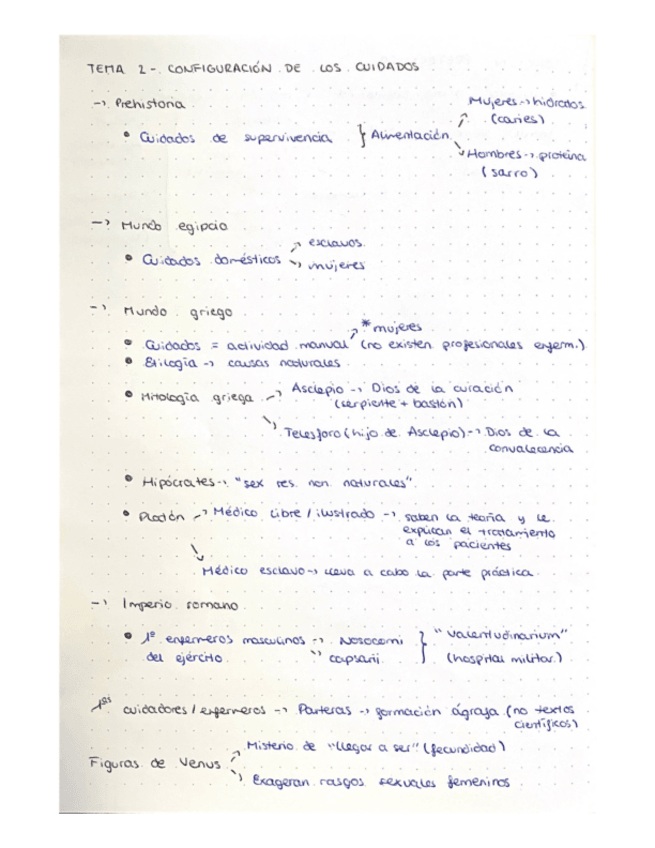 TEMA 2-. CONFIGURACIÓN DE LOS CUIDADOS
→ Prehistoria
Mujeres → hidratos (caries)
• Cuidados de supervivencia } Alimentación
Hombres → proteína (sarro)
→ Mundo egipcio
esclavos
• Cuidados domésticos
mujeres
→ Mundo griego
* mujeres
• Cuidados = actividad manual (no existen profesionales enferm.)
• Etilogía → causas naturales
• Mitología griega → Asclepio → Dios de la curación
(serpiente + bastón)
Telesforo (hijo de Asclepio) → Dios de la
convalecencia
• Hipócrates → "sex res. non naturales"
• Platón → Médico libre / ilustrado → saben la teoría y le
explican el tratamiento
a los pacientes
Médico esclavo → lleva a cabo la parte práctica
→ Imperio romano
• 1º enfermeros masculinos → Nosocomi } "valentudinarium"
del ejército → capsarii } (hospital militar)
1ºs cuidadores / enfermeros → Parteras → formación ágrafa (no textos
científicos)
Misterio de "llegar a ser" (fecundidad)
Figuras de Venus
Exageran rasgos sexuales femeninos